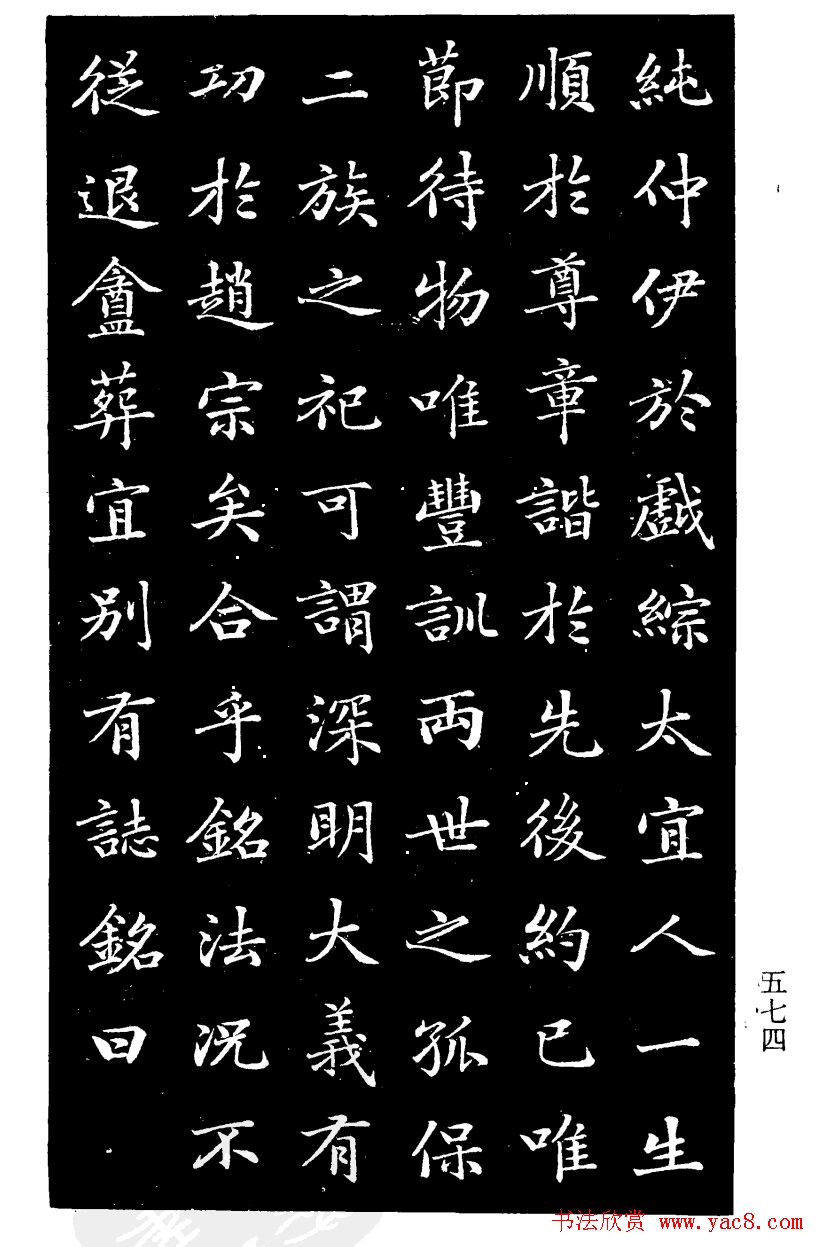 純仲伊於戲綜太宜人一生
順於尊章諧於先後約已唯
節待物唯豐訓两世之孤保
二族之祀可謂深明大義有
功於趙宗矣合乎銘法況不
從退盦葬宜別有誌銘曰
五七四
书法欣赏 www.yac8.com